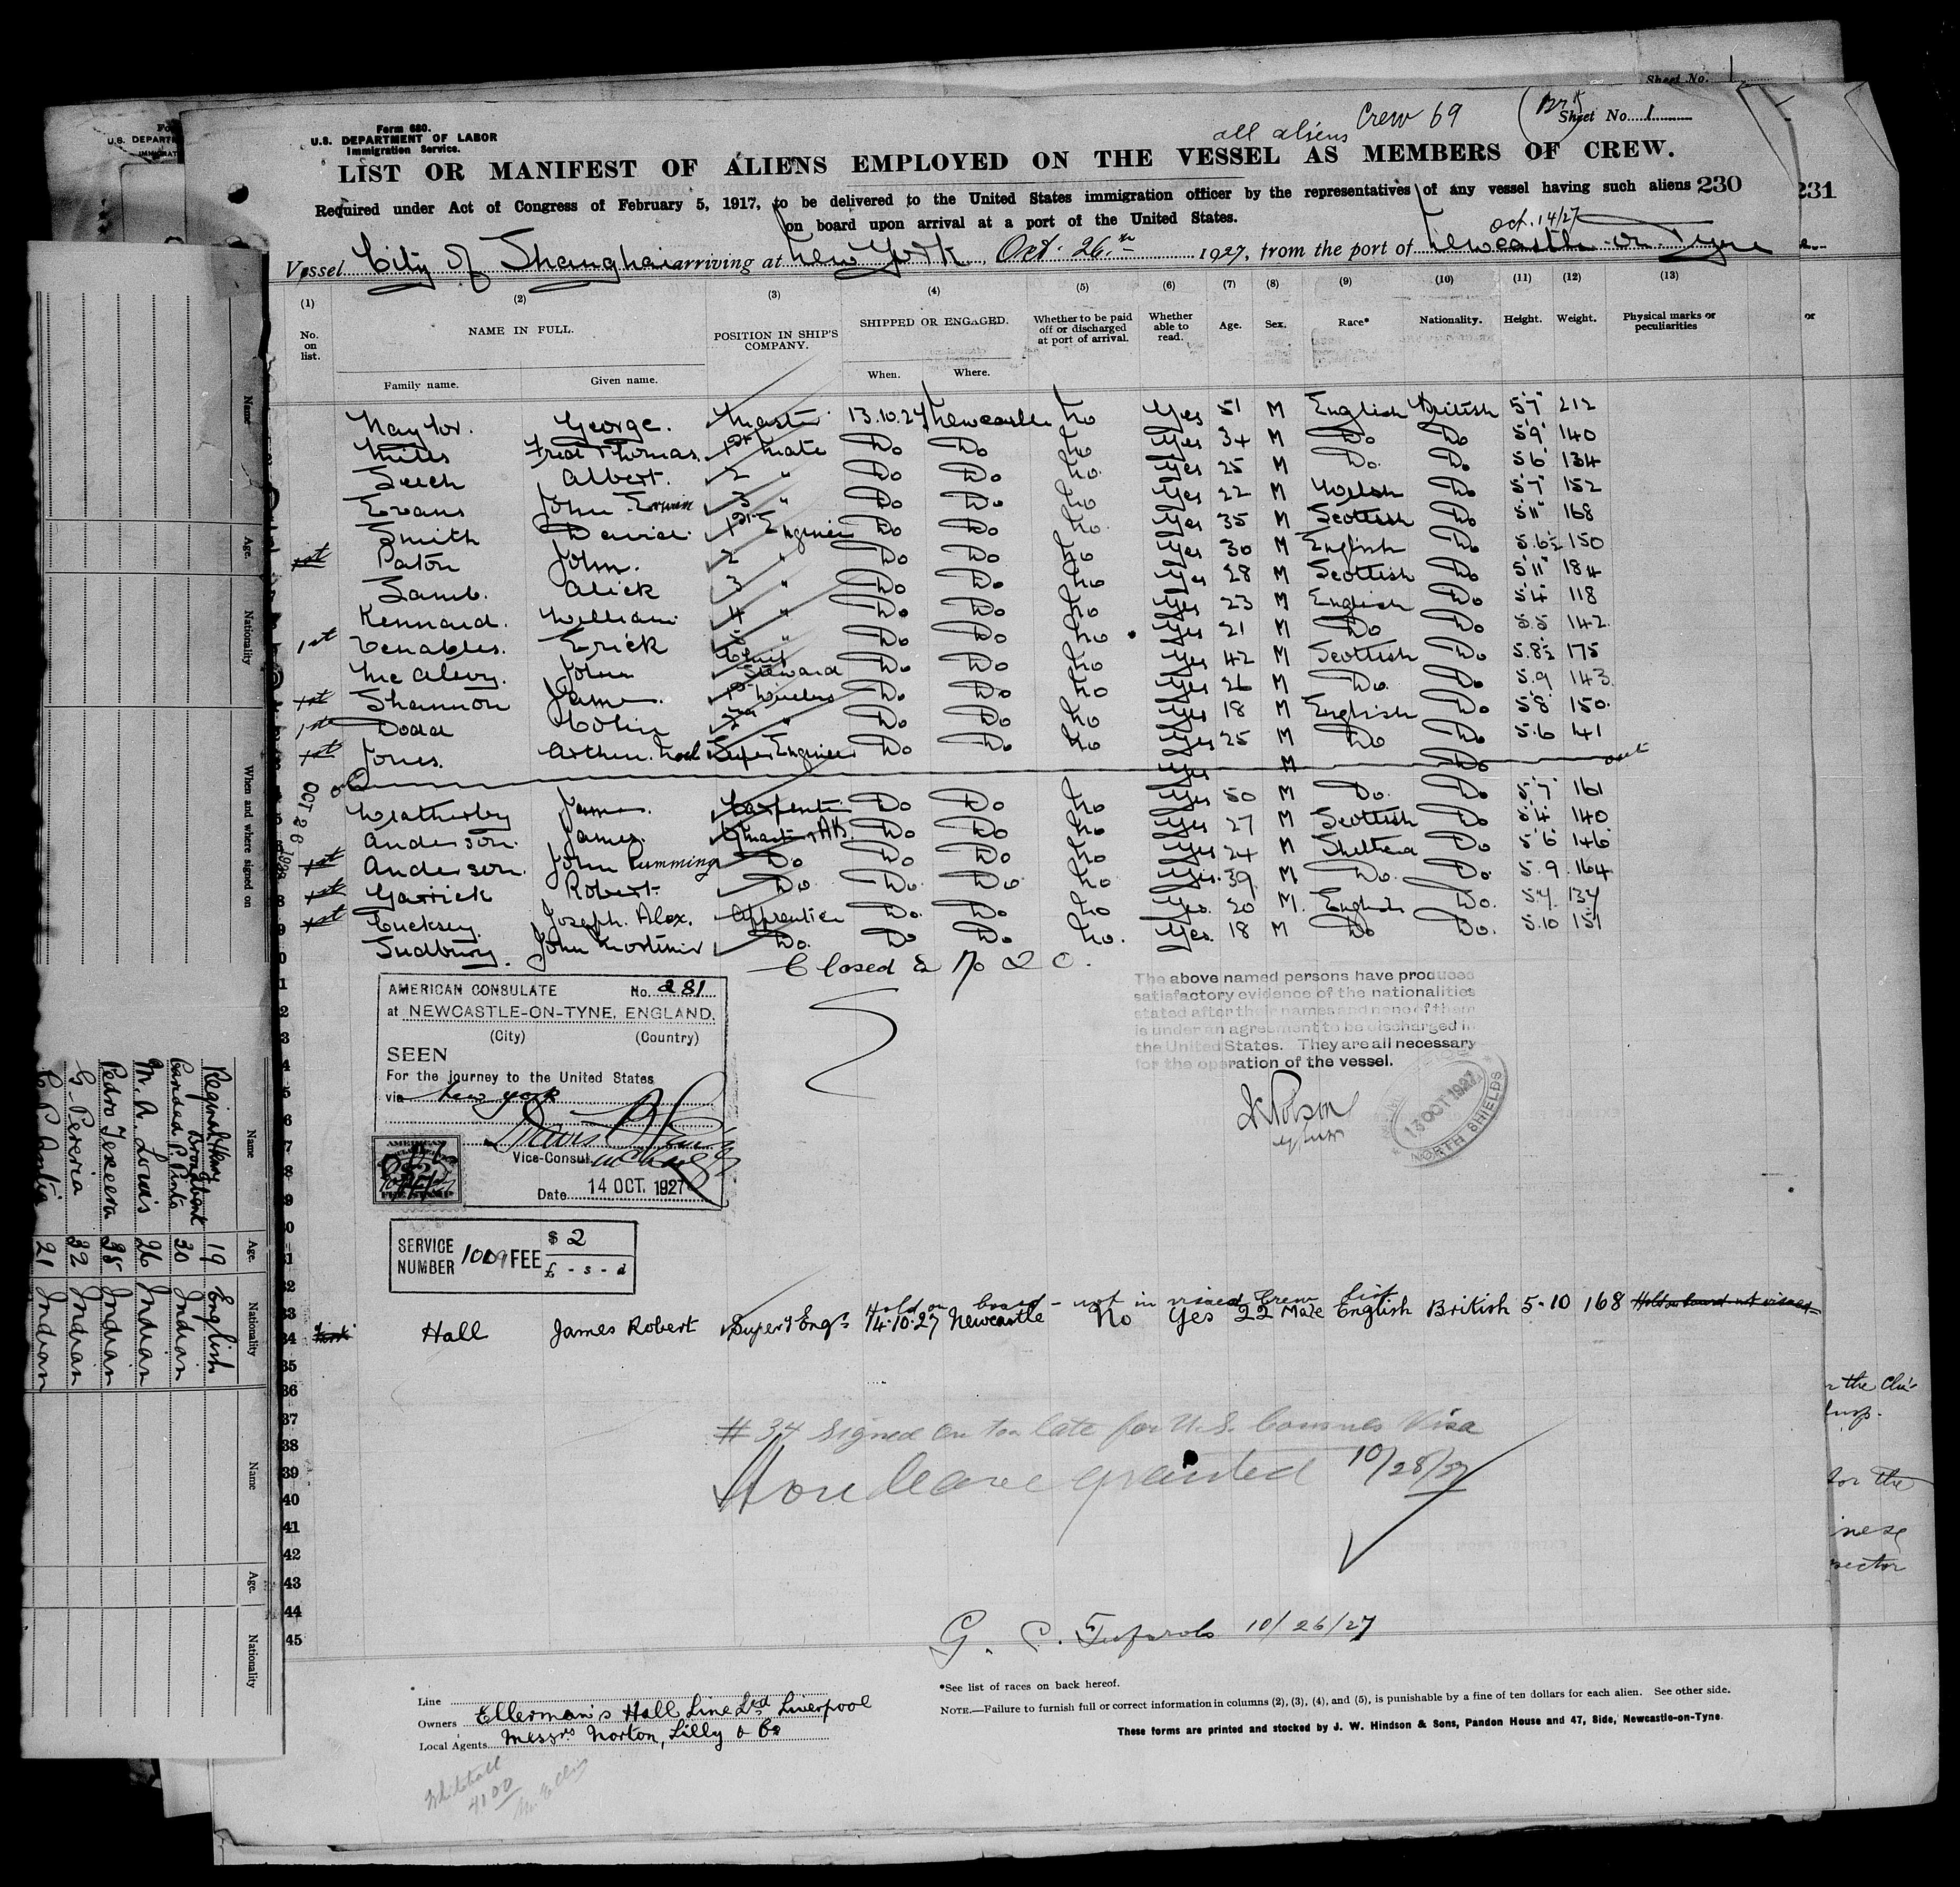 Sheet No. 1
Crew 69
all aliens
Sheet No. 1
Form 680.
U.S. DEPARTMENT OF LABOR
Immigration Service.
LIST OR MANIFEST OF ALIENS EMPLOYED ON THE VESSEL AS MEMBERS OF CREW.
230
231
Required under Act of Congress of February 5, 1917, to be delivered to the United States immigration officer by the representatives of any vessel having such aliens
on board upon arrival at a port of the United States.
Oct. 14/27
Vessel City of Shanghai arriving at New York Oct. 26th 1927, from the port of Newcastle-on-Tyne
(1) (2) (3) (4) (5) (6) (7) (8) (9) (10) (11) (12) (13)
No. on list. NAME IN FULL. POSITION IN SHIP'S COMPANY. SHIPPED OR ENGAGED. Whether to be paid off or discharged at port of arrival. Whether able to read. Age. Sex. Race* Nationality. Height. Weight. Physical marks or peculiarities
Family name. Given name. When. Where.
Naylor. George. Master 13.10.27 Newcastle No Yes 51 M English British 5'7" 212
Miles Fred Thomas. 1st Mate Do Do No Yes 34 M Do Do 5'9" 140
Albert. 2 " Do Do No Yes 25 M Do. Do 5'6 134
Evans John 3 " Do Do No Yes 22 M Welsh Do 5'7" 152
Smith David. 1st Engineer Do Do No. Yes 35 M Scottish Do 5'11" 168
1st Paton John. 2 " Do Do No Yes 30 M English Do 5.6½ 150
Lamb. Alick 3 " Do Do No Yes 28 M Scottish Do 5'11" 184
Kennard. William 4 " Do Do No Yes 23 M English Do 5'4" 118
1st Venables. Erick 5 " Do Do No Yes 21 M Do Do 5.5 142
McAlevy. John Chief Steward Do Do No Yes 42 M Scottish Do 5.8½ 175
1st Shannon James. 1st Wireless Do Do No Yes 26 M Do. Do 5.9 143
1st Dodd Colin 2nd " Do Do No Yes 18 M English Do 5'8" 150
1st Jones. Arthur. Noel Super Engineer Do Do No Yes 25 M Do Do 5.6 141
Yes M Do out
OCT 26
Weatherby James. Carpenter Do Do No Yes 50 M Do. Do 5'7" 161
Anderson. James. Do Do No Yes 27 M Scottish Do 5'4 140
1st Anderson. John Cumming Do Do Do No Yes 24 M Do 5'6" 146
1st Garrick Robert Do. Do. Do. No Yes. 39 M Do. Do. 5.9. 164
1st Cucksey. Joseph. Alex. Apprentice Do. Do No Yes. 20 M. English Do. 137
Sudbury. John Mortimer Do. Do Do No. Yes. 18 M Do Do. 5.10 151
Closed
AMERICAN CONSULATE No. 281
at NEWCASTLE-ON-TYNE, ENGLAND.
(City) (Country)
SEEN
For the journey to the United States
via New York
Vice-Consul
Date 14 OCT. 1927
The above named persons have produced
satisfactory evidence of the nationalities
stated after their names and none of them
is under an agreement to be discharged in
the United States. They are all necessary
for the operation of the vessel.
13 OCT 1927
NORTH SHIELDS
SERVICE NUMBER 1009 FEE $ 2
£ - s - d
Hold on board - not in visaed Crew list
34 Hall James Robert Supert Engr 14.10.27 Newcastle No Yes 22 Male English British 5-10 168
35
36
37
38
39
40
41
42
43
44
45
# 34 signed on too late for U.S. Consuls Visa
Shore leave granted 10/28/27
10/26/27
Line
Owners Ellerman's Hall Line Ltd Liverpool
Local Agents Messrs Norton, Lilly & Co
Whitehall
*See list of races on back hereof.
NOTE.—Failure to furnish full or correct information in columns (2), (3), (4), and (5), is punishable by a fine of ten dollars for each alien. See other side.
These forms are printed and stocked by J. W. Hindson & Sons, Pandon House and 47, Side, Newcastle-on-Tyne.
Name Age. Nationality When and where signed on
Name Age. Nationality
Reginald Henry Broadbent 19 English
Candad P. Pinto 30 Indian
M. A. Louis 26 Indian
Pedro Texeera 38 Indian
G. Pereria 32 Indian
21 Indian
Name Age. Nationality